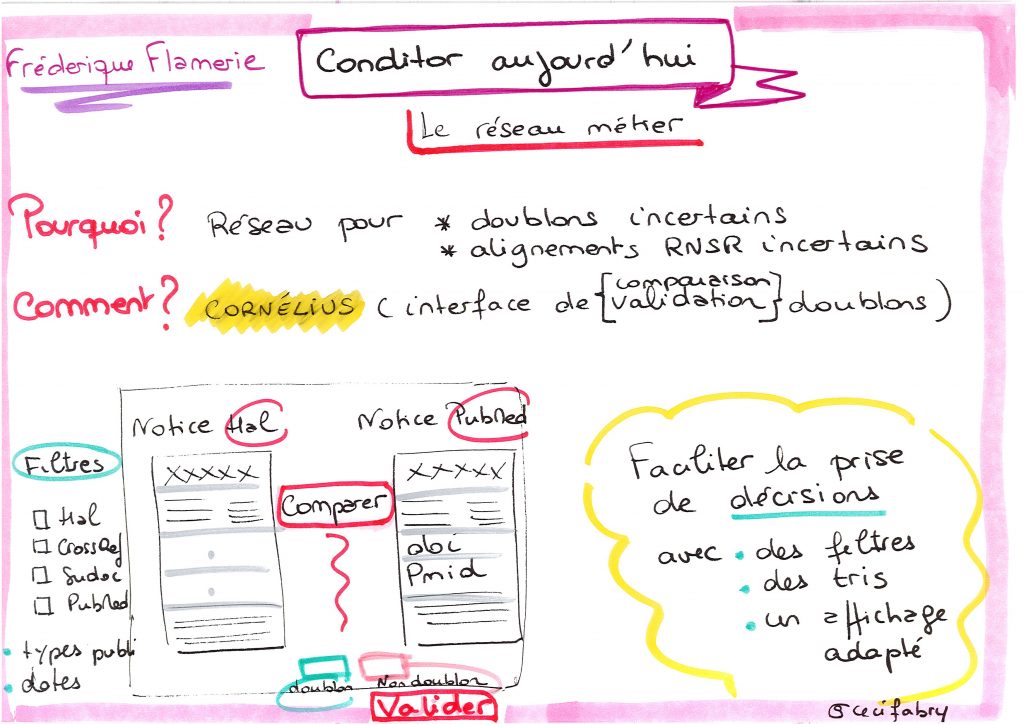 Fréderique Flamerie
Conditor aujourd'hui
Le réseau métier
Pourquoi ? Réseau pour * doublons incertains
* alignements RNSR incertains
Comment ? CORNÉLIUS (interface de [comparaison
validation] doublons)
Notice Hal
Notice PubMed
Filtres
Hal
CrossRef
Sudoc
PubMed
• types publi
• dates
XXXXX
Comparer
XXXXX
doi
Pmid
doublon
Non doublon
Valider
Faciliter la prise
de décisions
avec • des filtres
• des tris
• un affichage
adapté
@cecifabry